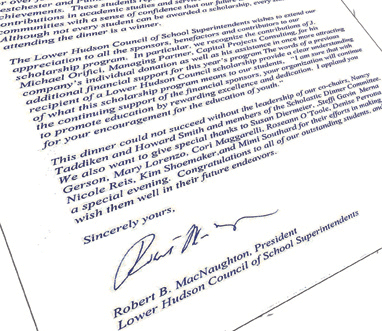 achievements
contributions in academic studies and
with a sense of confidence that our future
Although not every student can be awarded a scholarship, every
attending the dinner is a winner.
The Lower Hudson Council of School Superintendents wishes to extend our
appreciation to all the sponsors, benefactors and contributors to our
scholarship program. In particular, we recognize the contributions of J.
Michael Orifici, Managing Partner, Capital Projects Consulting, for his
company's individual donation as well as his assistance in once more attracting
additional financial support for this year's program. The words of a previous
recipient of a Lower Hudson Council scholarship provide a clear understanding
of what this scholarship program means to our students: "I am sure that with
the continuing support of the financial sponsors, your organization will continue
to promote education by rewarding excellence and dedication. I applaud you
for your encouragement for the education of youth."
This dinner could not succeed without the leadership of our co-chairs, Nancy
Taddiken and Howard Smith and members of the Scholastic Dinner Committee.
We also want to give special thanks to Susan Dierwater, Steffi Gavin
Gerson, Mary Lorenzo, Cori Maggiarelli, Roseann O'Toole, Denise Perrotta
Nicole Reis, Kim Shoemaker and Mimi Southard for their efforts in making
a special evening. Congratulations to all of our outstanding students, and
wish them well in their future endeavors.
Sincerely yours,
Robert B. MacNaughton, President
Lower Hudson Council of School Superintendents